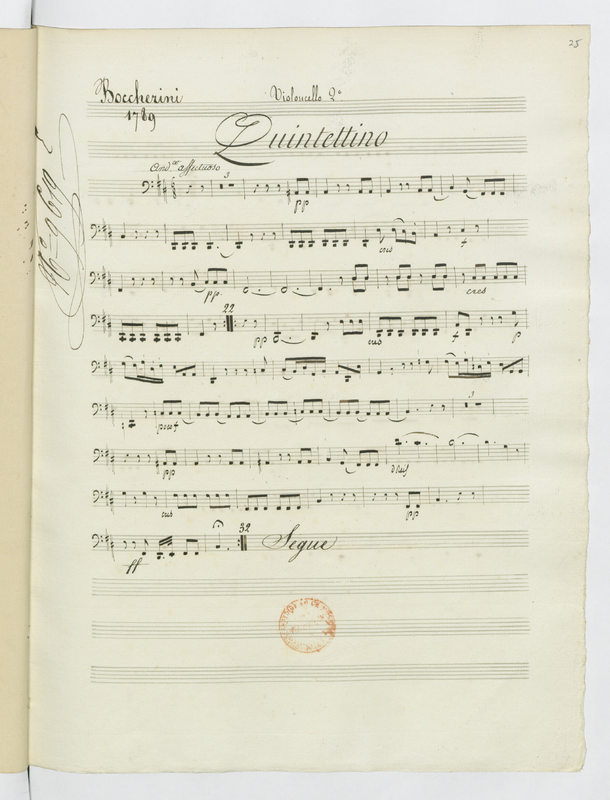 25
Boccherini
Violoncello 2º
1789
Quintettino
And.no affettuoso
3
pp
cres
f
pp
cres
22
pp
cres
f
p
poco f
3
pp
dolce
cres
pp
32
Segue
ff